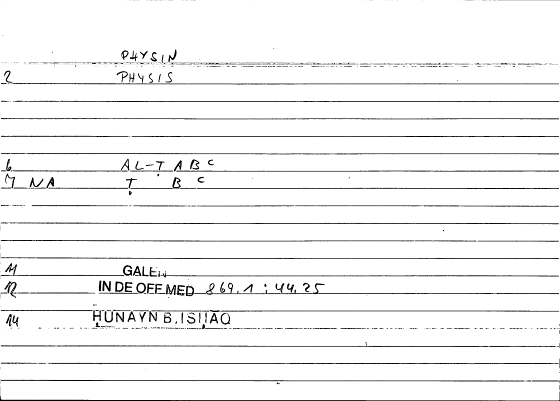 PHYSIN
2 PHYSIS
6 AL-ṬABᶜ
7 NA Ṭ B ᶜ
11 GALEN
12 IN DE OFF.MED 869.1 : 44.25
14 ḤUNAYN B. ISḤĀQ